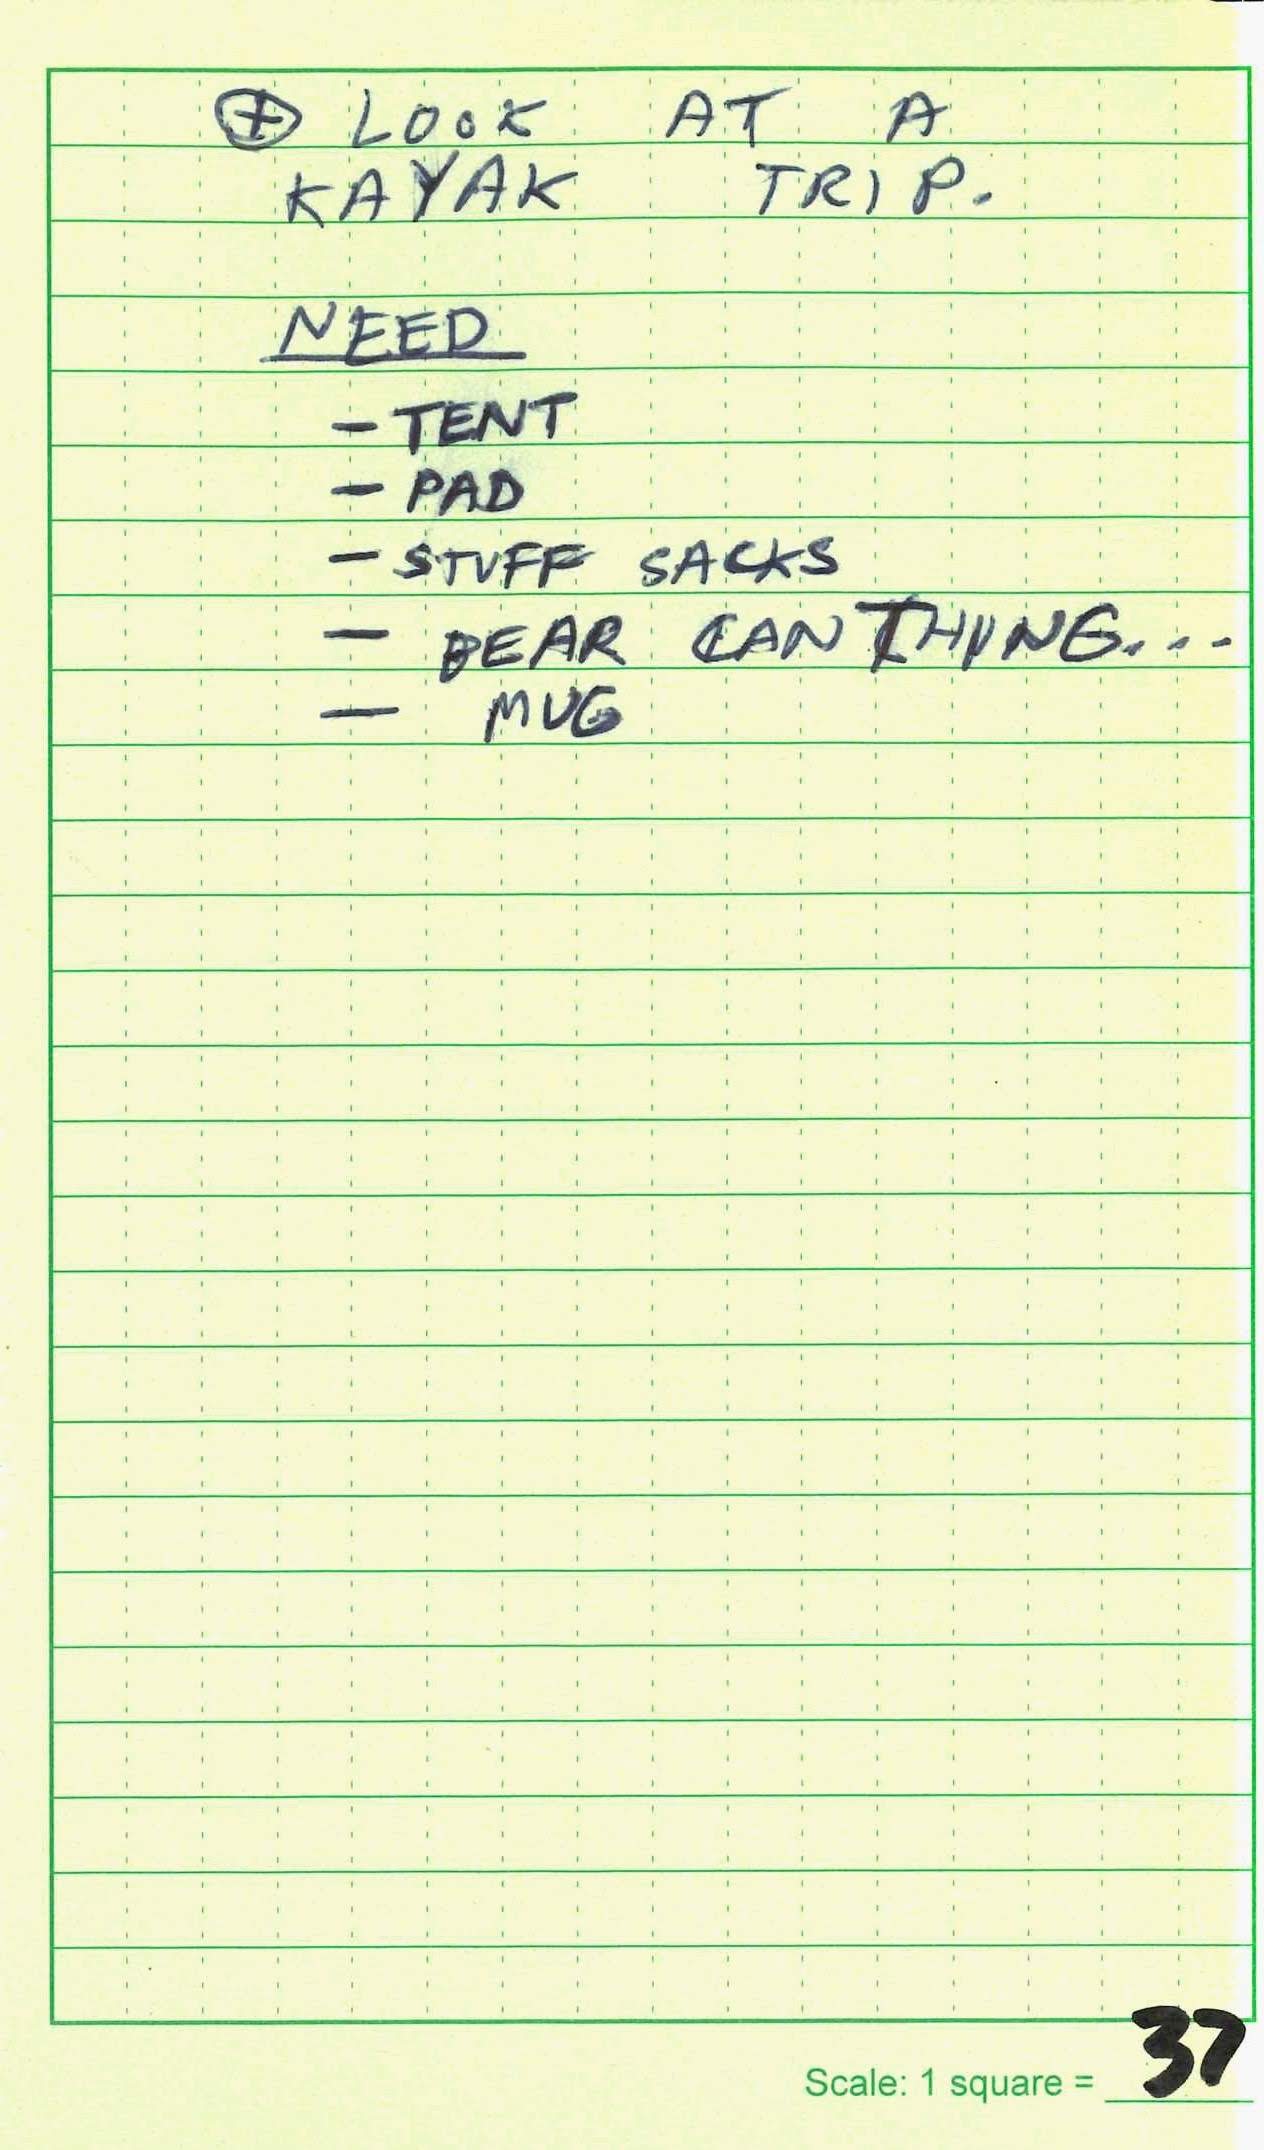 ⊕ LOOK AT A
KAYAK TRIP.
NEED
- TENT
- PAD
- STUFF SACKS
- BEAR CAN THING....
- MUG
Scale: 1 square = 37